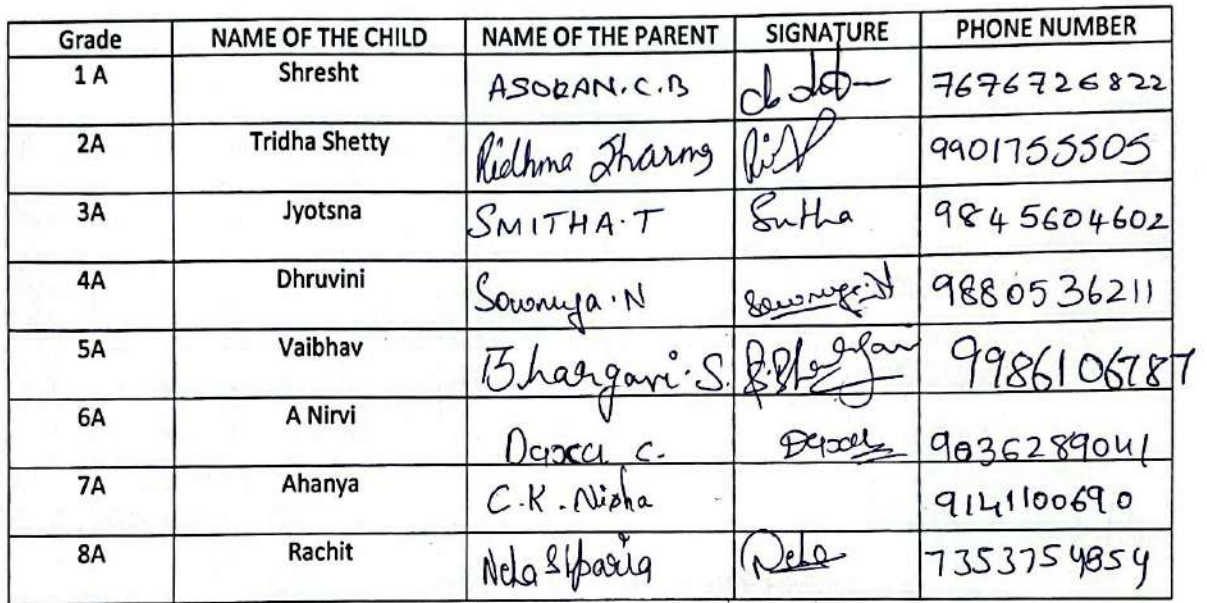 Grade NAME OF THE CHILD NAME OF THE PARENT SIGNATURE PHONE NUMBER
1 A Shresht ASOKAN.C.B 7676726822
2A Tridha Shetty Ridhma Sharma 9901755505
3A Jyotsna SMITHA.T Smitha 9845604602
4A Dhruvini Sowmya.N Sowmya.N 9880536211
5A Vaibhav Bhargavi.S. 9986106787
6A A Nirvi Daxa C. Daxa 9036289041
7A Ahanya C.K.Nisha 9141100690
8A Rachit Neha Neha 7353754854